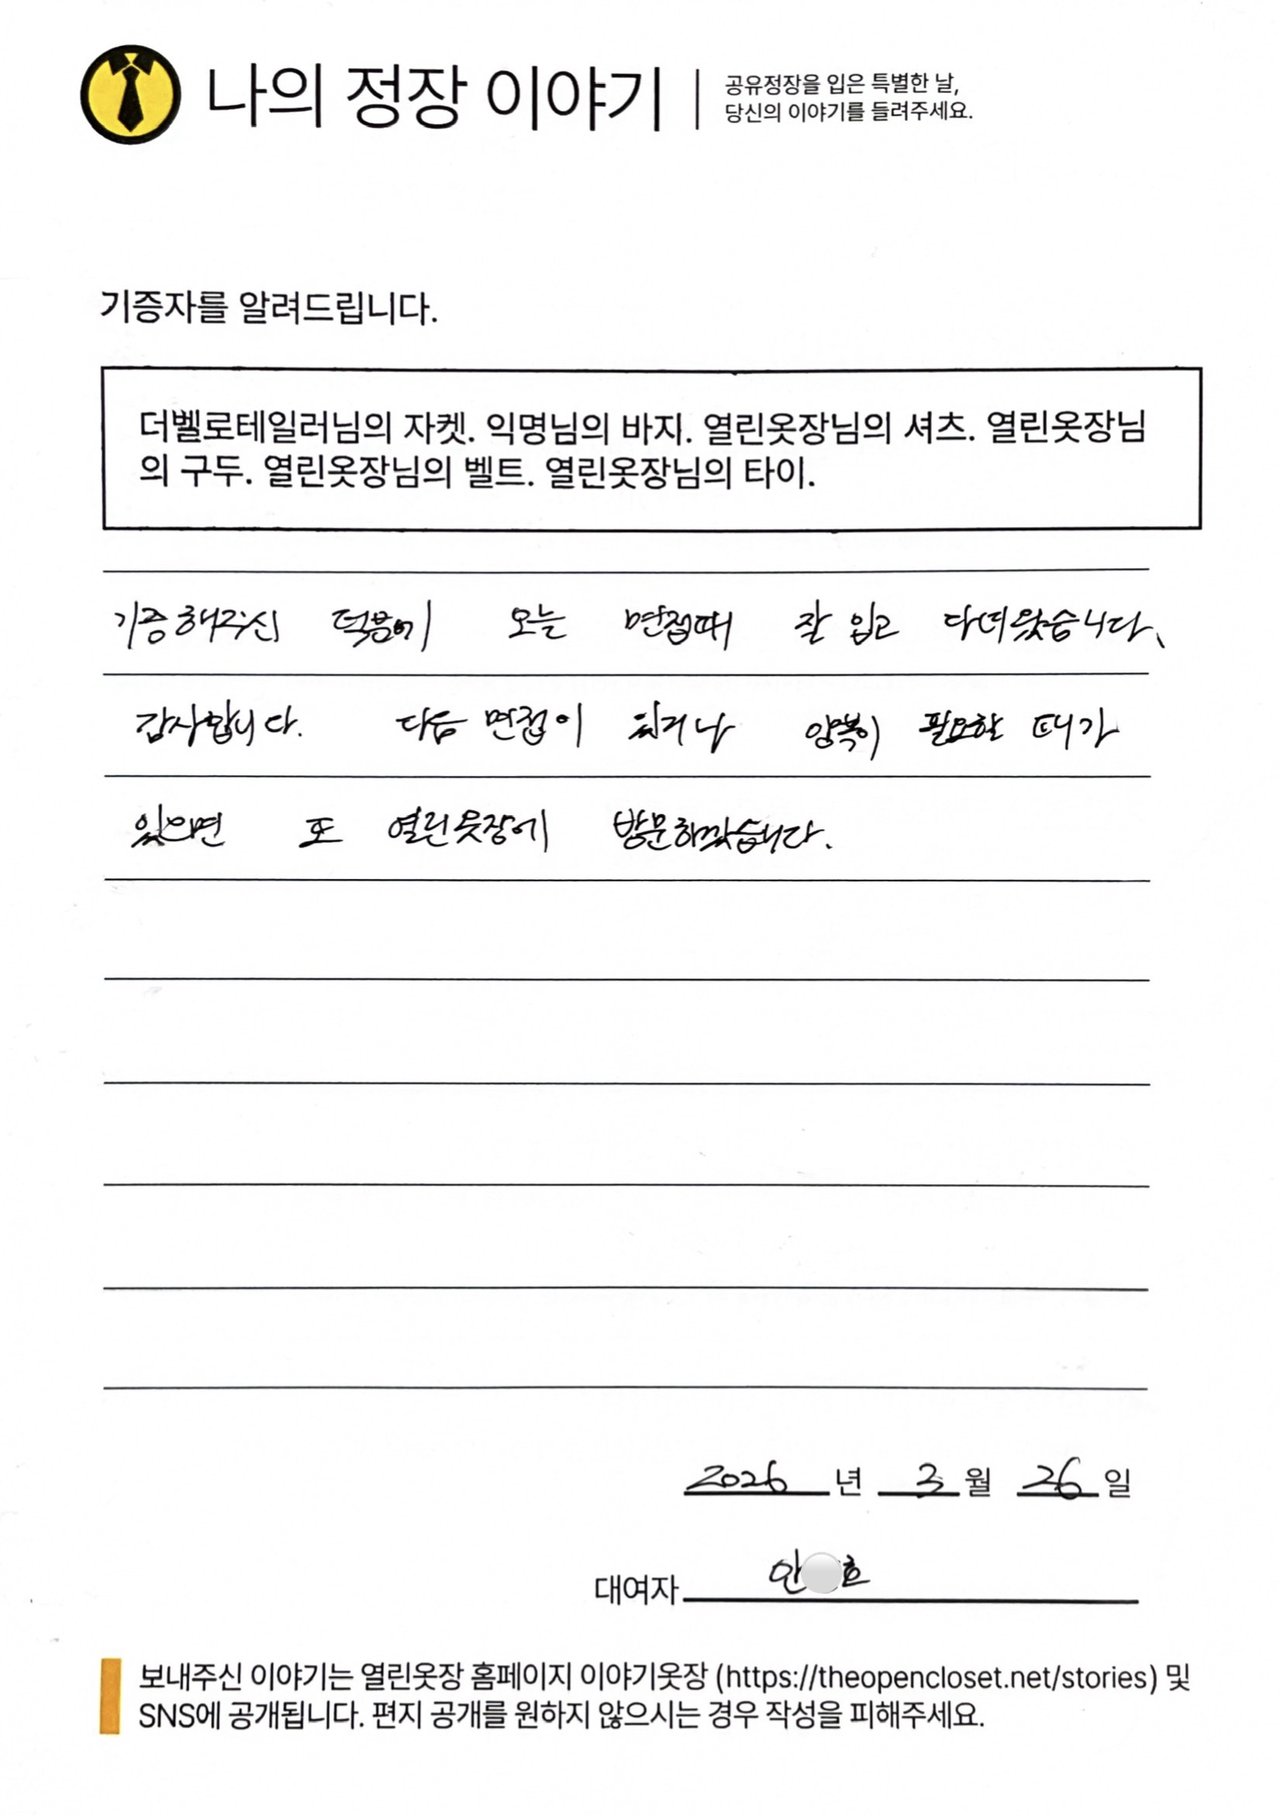 나의 정장 이야기
공유정장을 입은 특별한 날,
당신의 이야기를 들려주세요.
기증자를 알려드립니다.
더벨로테일러님의 자켓. 익명님의 바지. 열린옷장님의 셔츠. 열린옷장님
의 구두. 열린옷장님의 벨트. 열린옷장님의 타이.
기증해주신 덕분에 오늘 면접때 잘 입고 다녀왔습니다.
감사합니다. 다음 면접이 있거나 양복이 필요할 때가
있으면 또 열린옷장에 방문하겠습니다.
2026 년 3 월 26 일
대여자 안 호
보내주신 이야기는 열린옷장 홈페이지 이야기옷장 (https://theopencloset.net/stories) 및
SNS에 공개됩니다. 편지 공개를 원하지 않으시는 경우 작성을 피해주세요.